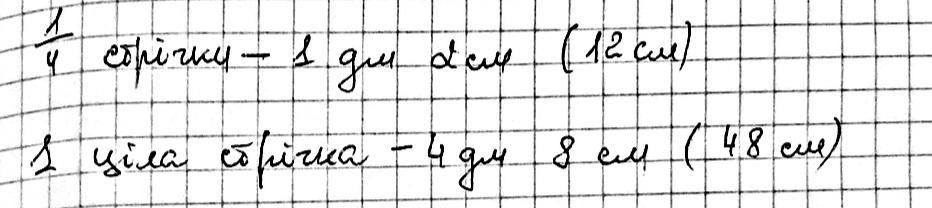 1/4 стрічки – 1 дм 2 см (12 см)
1 ціла стрічка – 4 дм 8 см (48 см)